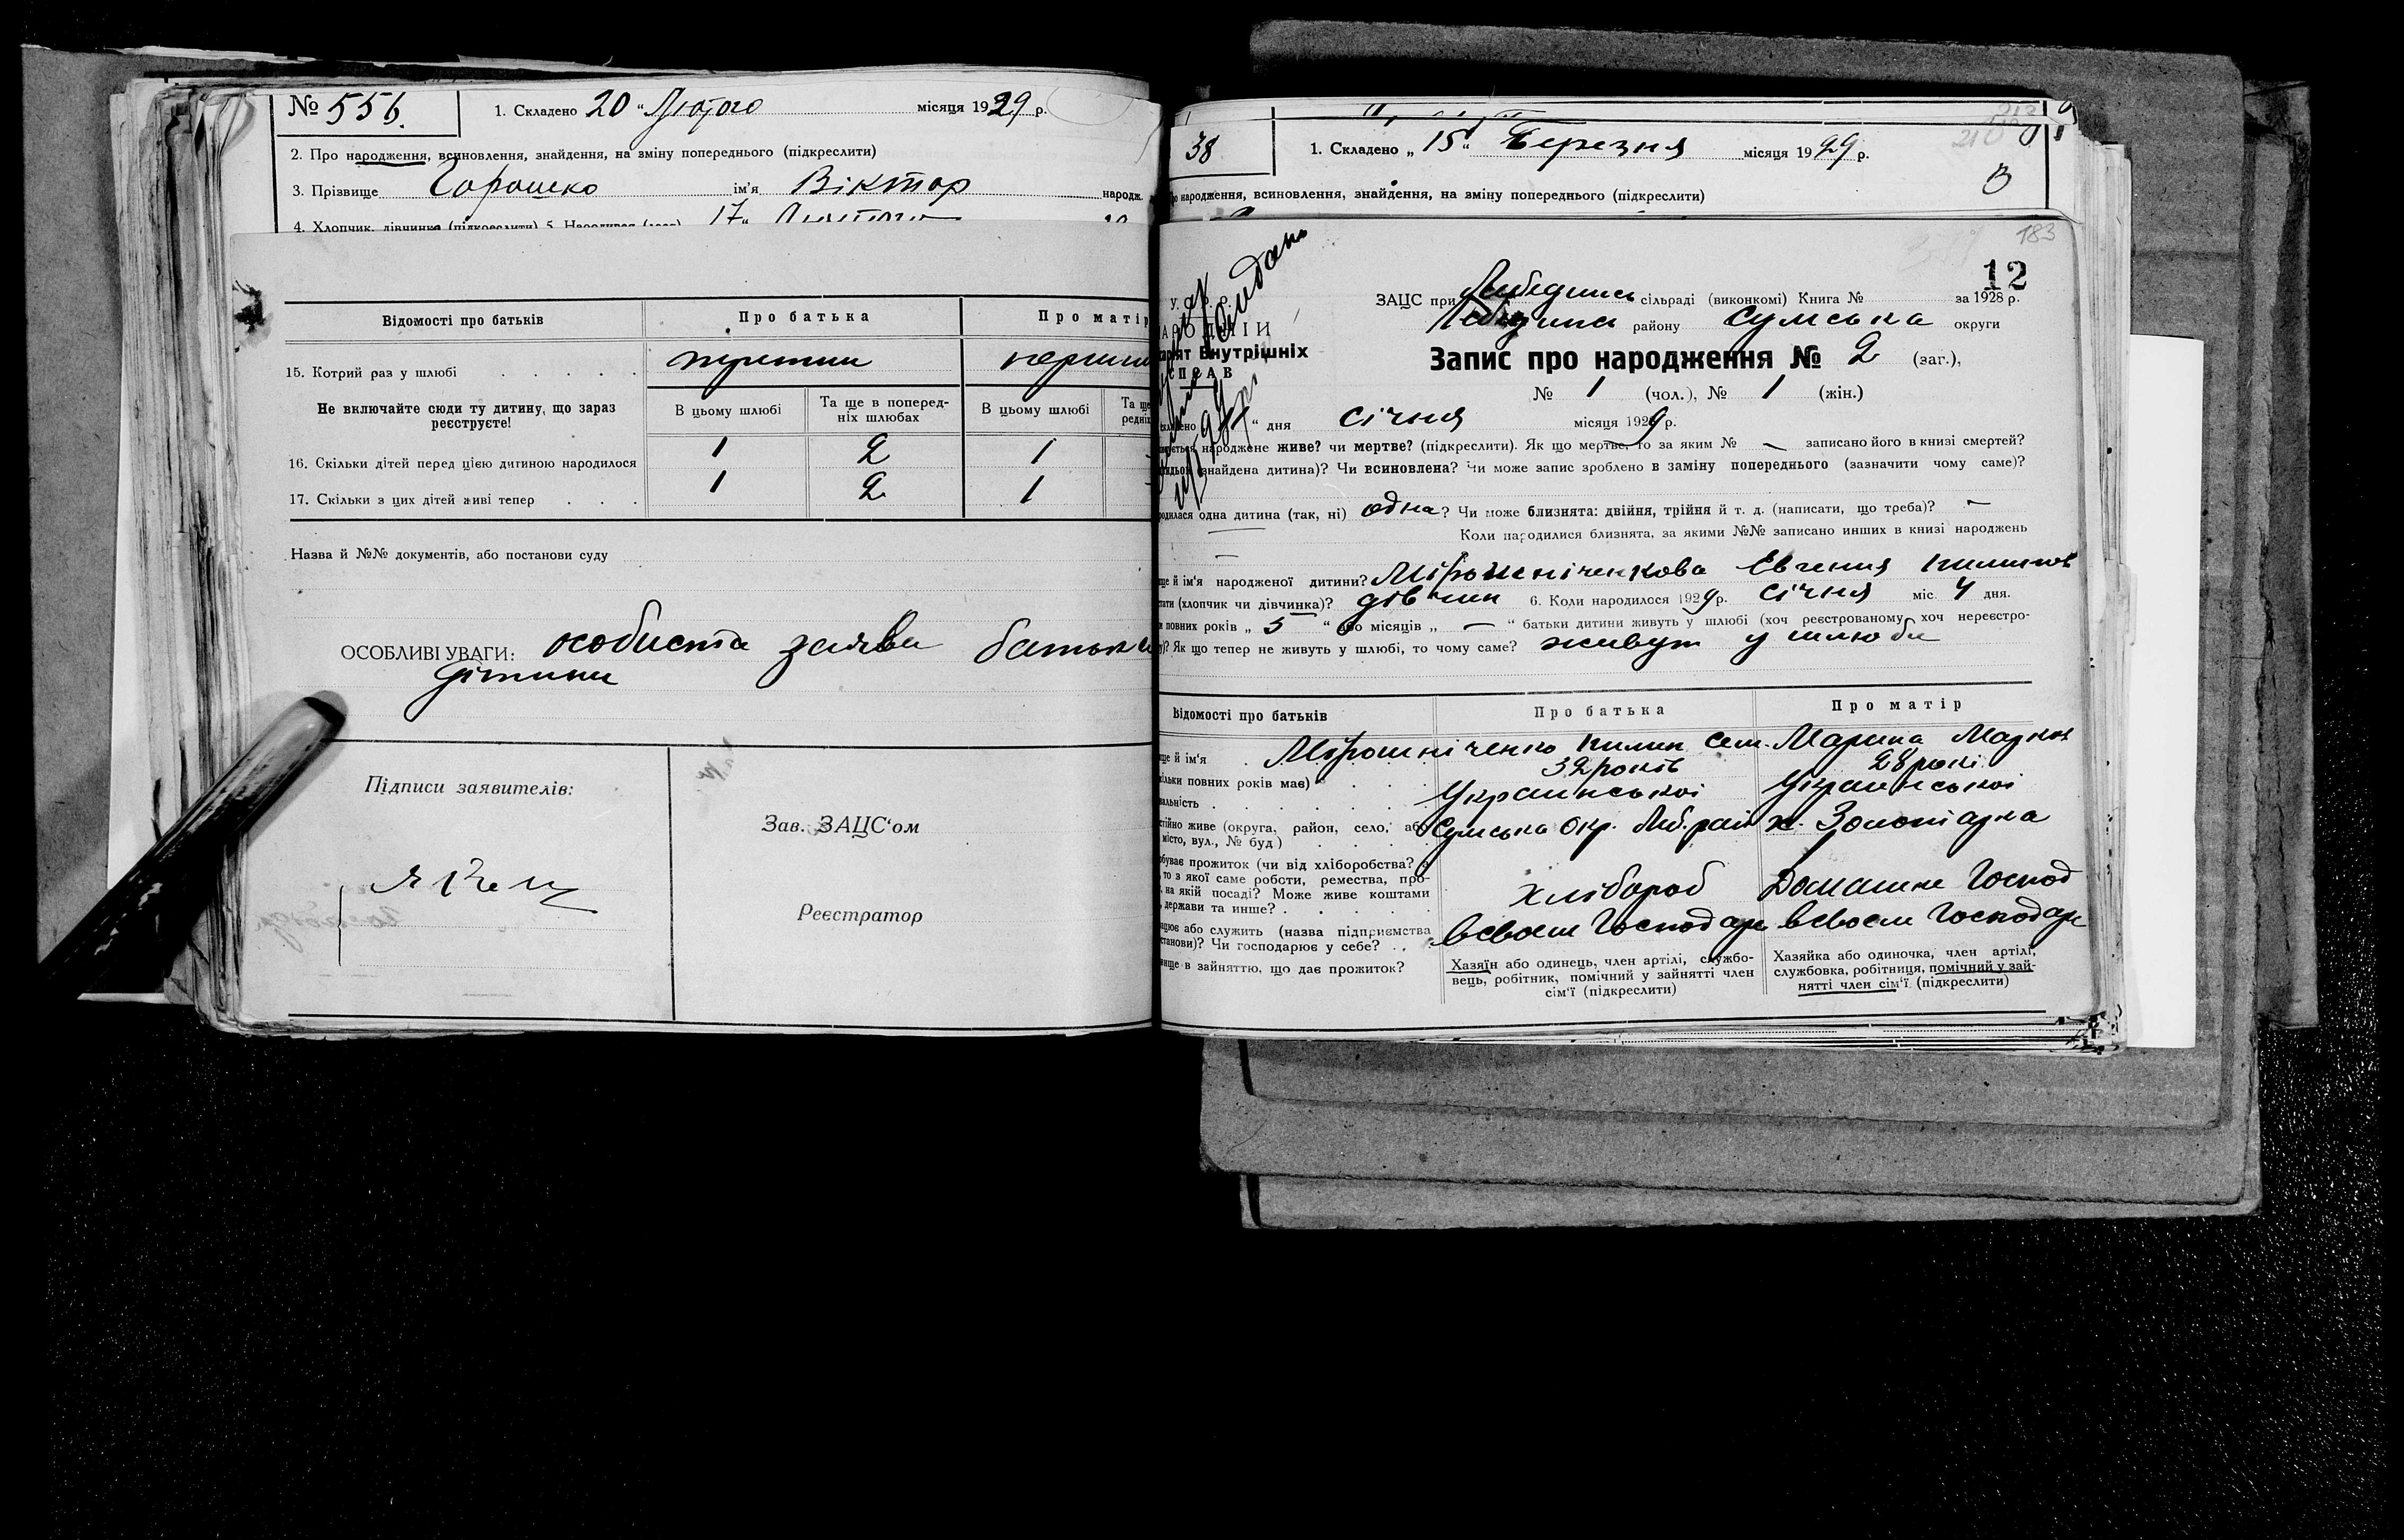 № 556. 1. Складено 20 " Лютого місяця 1929 р.
2. Про народження, всиновлення, знайдення, на зміну попереднього (підкреслити)
3. Прізвище Горошко ім'я Віктор народж.
4. Хлопчик, дівчинка (підкреслити) 5. Народився 17 " Лютого
Відомості про батьків Про батька Про матір
15. Котрий раз у шлюбі
Не включайте сюди ту дитину, що зараз реєструєте!
В цьому шлюбі Та ще в поперед-ніх шлюбах В цьому шлюбі Та ще
редніх
16. Скільки дітей перед цією дитиною народилося 1 2 1
17. Скільки з цих дітей живі тепер 1 2 1
Назва й №№ документів, або постанови суду
ОСОБЛИВІ УВАГИ: особиста заява батька
дітини
Підписи заявителів:
Зав. ЗАЦС‘ом
Реєстратор
38 1. Складено „ 15 " Березня місяця 1929 р.
народження, всиновлення, знайдення, на зміну попереднього (підкреслити)
В
183
12
У. С. Р. Р.
Внутрішніх
СПРАВ
ЗАЦС при сільраді (виконкомі) Книга № за 1928 р.
району Сумська округи
Запис про народження № 2 (заг.),
№ 1 (чол.), № 1 (жін.)
“ дня січня місяця 1929 р.
народжене живе? чи мертве? (підкреслити). Як що мертве, то за яким № — записано його в книзі смертей?
знайдена дитина)? Чи всиновлена? Чи може запис зроблено в заміну попереднього (зазначити чому саме)?
одна дитина (так, ні) одна? Чи може близнята: двійня, трійня й т. д. (написати, що треба)? —
Коли народилися близнята, за якими №№ записано инших в книзі народжень
й ім‘я народженої дитини? Мірошніченкова Евгения
(хлопчик чи дівчинка)? дівчин 6. Коли народилося 1929 р. січня міс 4 дня.
повних років „ 5 “ або місяців „ — “ батьки дитини живуть у шлюбі (хоч реєстрованому хоч нереєстро-
)? Як що тепер не живуть у шлюбі, то чому саме? живут у шлюбі
Відомості про батьків Про батька Про матір
й ім‘я Мірошніченко Килип Сем. Марина Марков
повних років має) 32 років 28 рокі
Украінськоі Украінськоі
живе (округа, район, село, або Сумська Окр. Леб. рай х. Золотарка
місто, вул., № буд)
прожиток (чи від хліборобства? а
то з якої саме роботи, ремества, про-
на якій посаді? Може живе коштами
держави та инше? Хлібороб Домашне Господ
або служить (назва підприємства
)? Чи господарює у себе? всвоем Господар всвоем Господар
в зайняттю, що дає прожиток?
Хазяїн або одинець, член артілі, службо-
вець, робітник, помічний у зайнятті член
сім‘ї (підкреслити)
Хазяйка або одиночка, член артілі,
службовка, робітниця, помічний у зай-
нятті член сім‘ї (підкреслити)